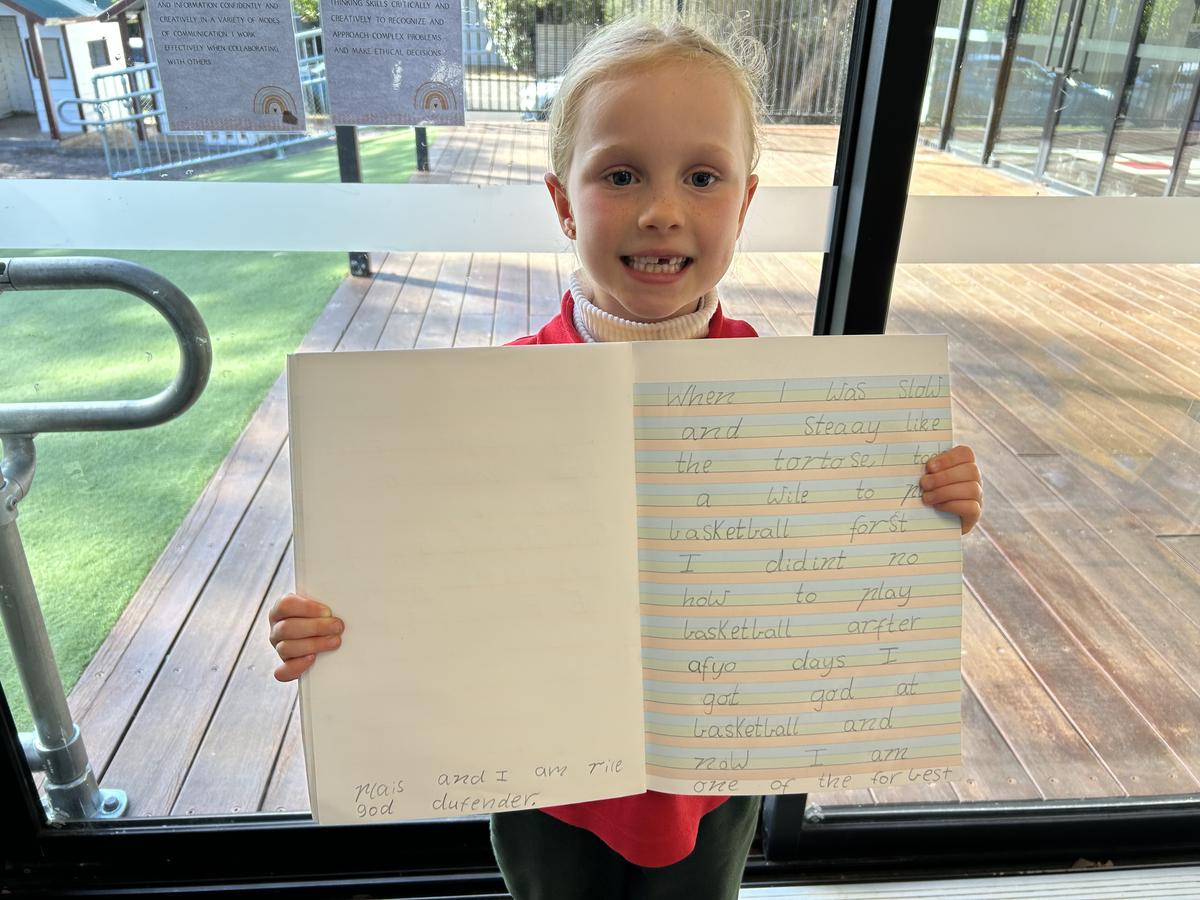 AND INFORMATION CONFIDENTLY AND
CREATIVELY IN A VARIETY OF MODES
OF COMMUNICATION. I WORK
EFFECTIVELY WHEN COLLABORATING
WITH OTHERS
THINKING SKILLS CRITICALLY AND
CREATIVELY TO RECOGNIZE AND
APPROACH COMPLEX PROBLEMS
AND MAKE ETHICAL DECISIONS
When I was slow
and steaay like
the tortose, I
a wile to
basketball forst
I didint no
how to play
basketball arfter
afyo days I
got god at
basketball and
now I am
one of the for best
plais and I am rile
god dufender.